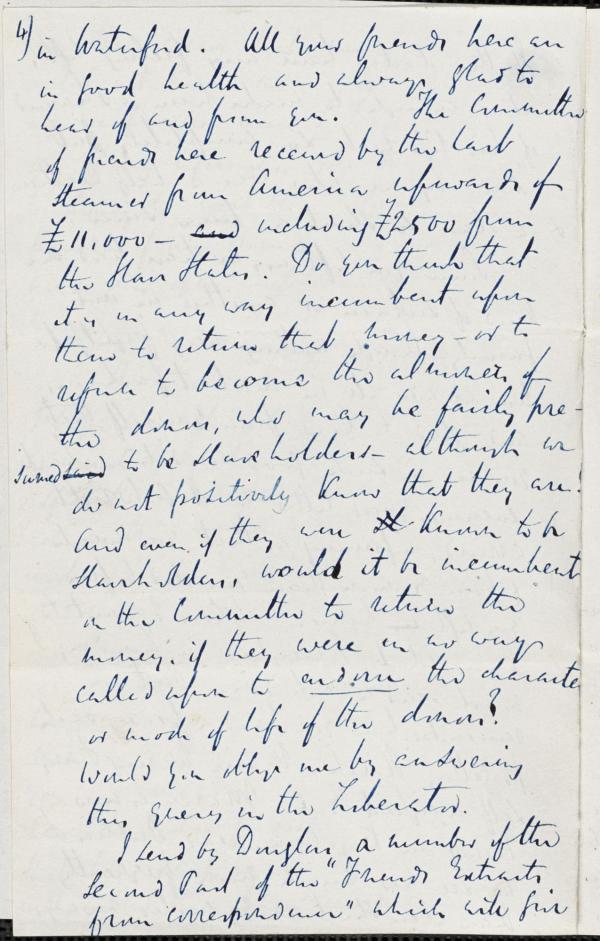 4) in Waterford. All your friends here are
in good health and always glad to
hear of and from you. The Committee
of friends here received by the last
steamer from America upwards of
£11,000 – and including £2500 from
the Slave States. Do you think that
it is in any way incumbent upon
them to return that money – or to
refuse to become the almoners of
the donors, who may be fairly pre-
sumed said to be slaveholders – although we
do not positively know that they are?
And even if they were known to be
slaveholders, would it be incumbent
on the Committee to return the
money, if they were in no way
called upon to endorse the character
or mode of life of the donors?
Would you oblige me by answering
this query in the Liberator.
I send by Douglass a number of the
Second Part of the "Friends Extracts
from correspondence" which will give